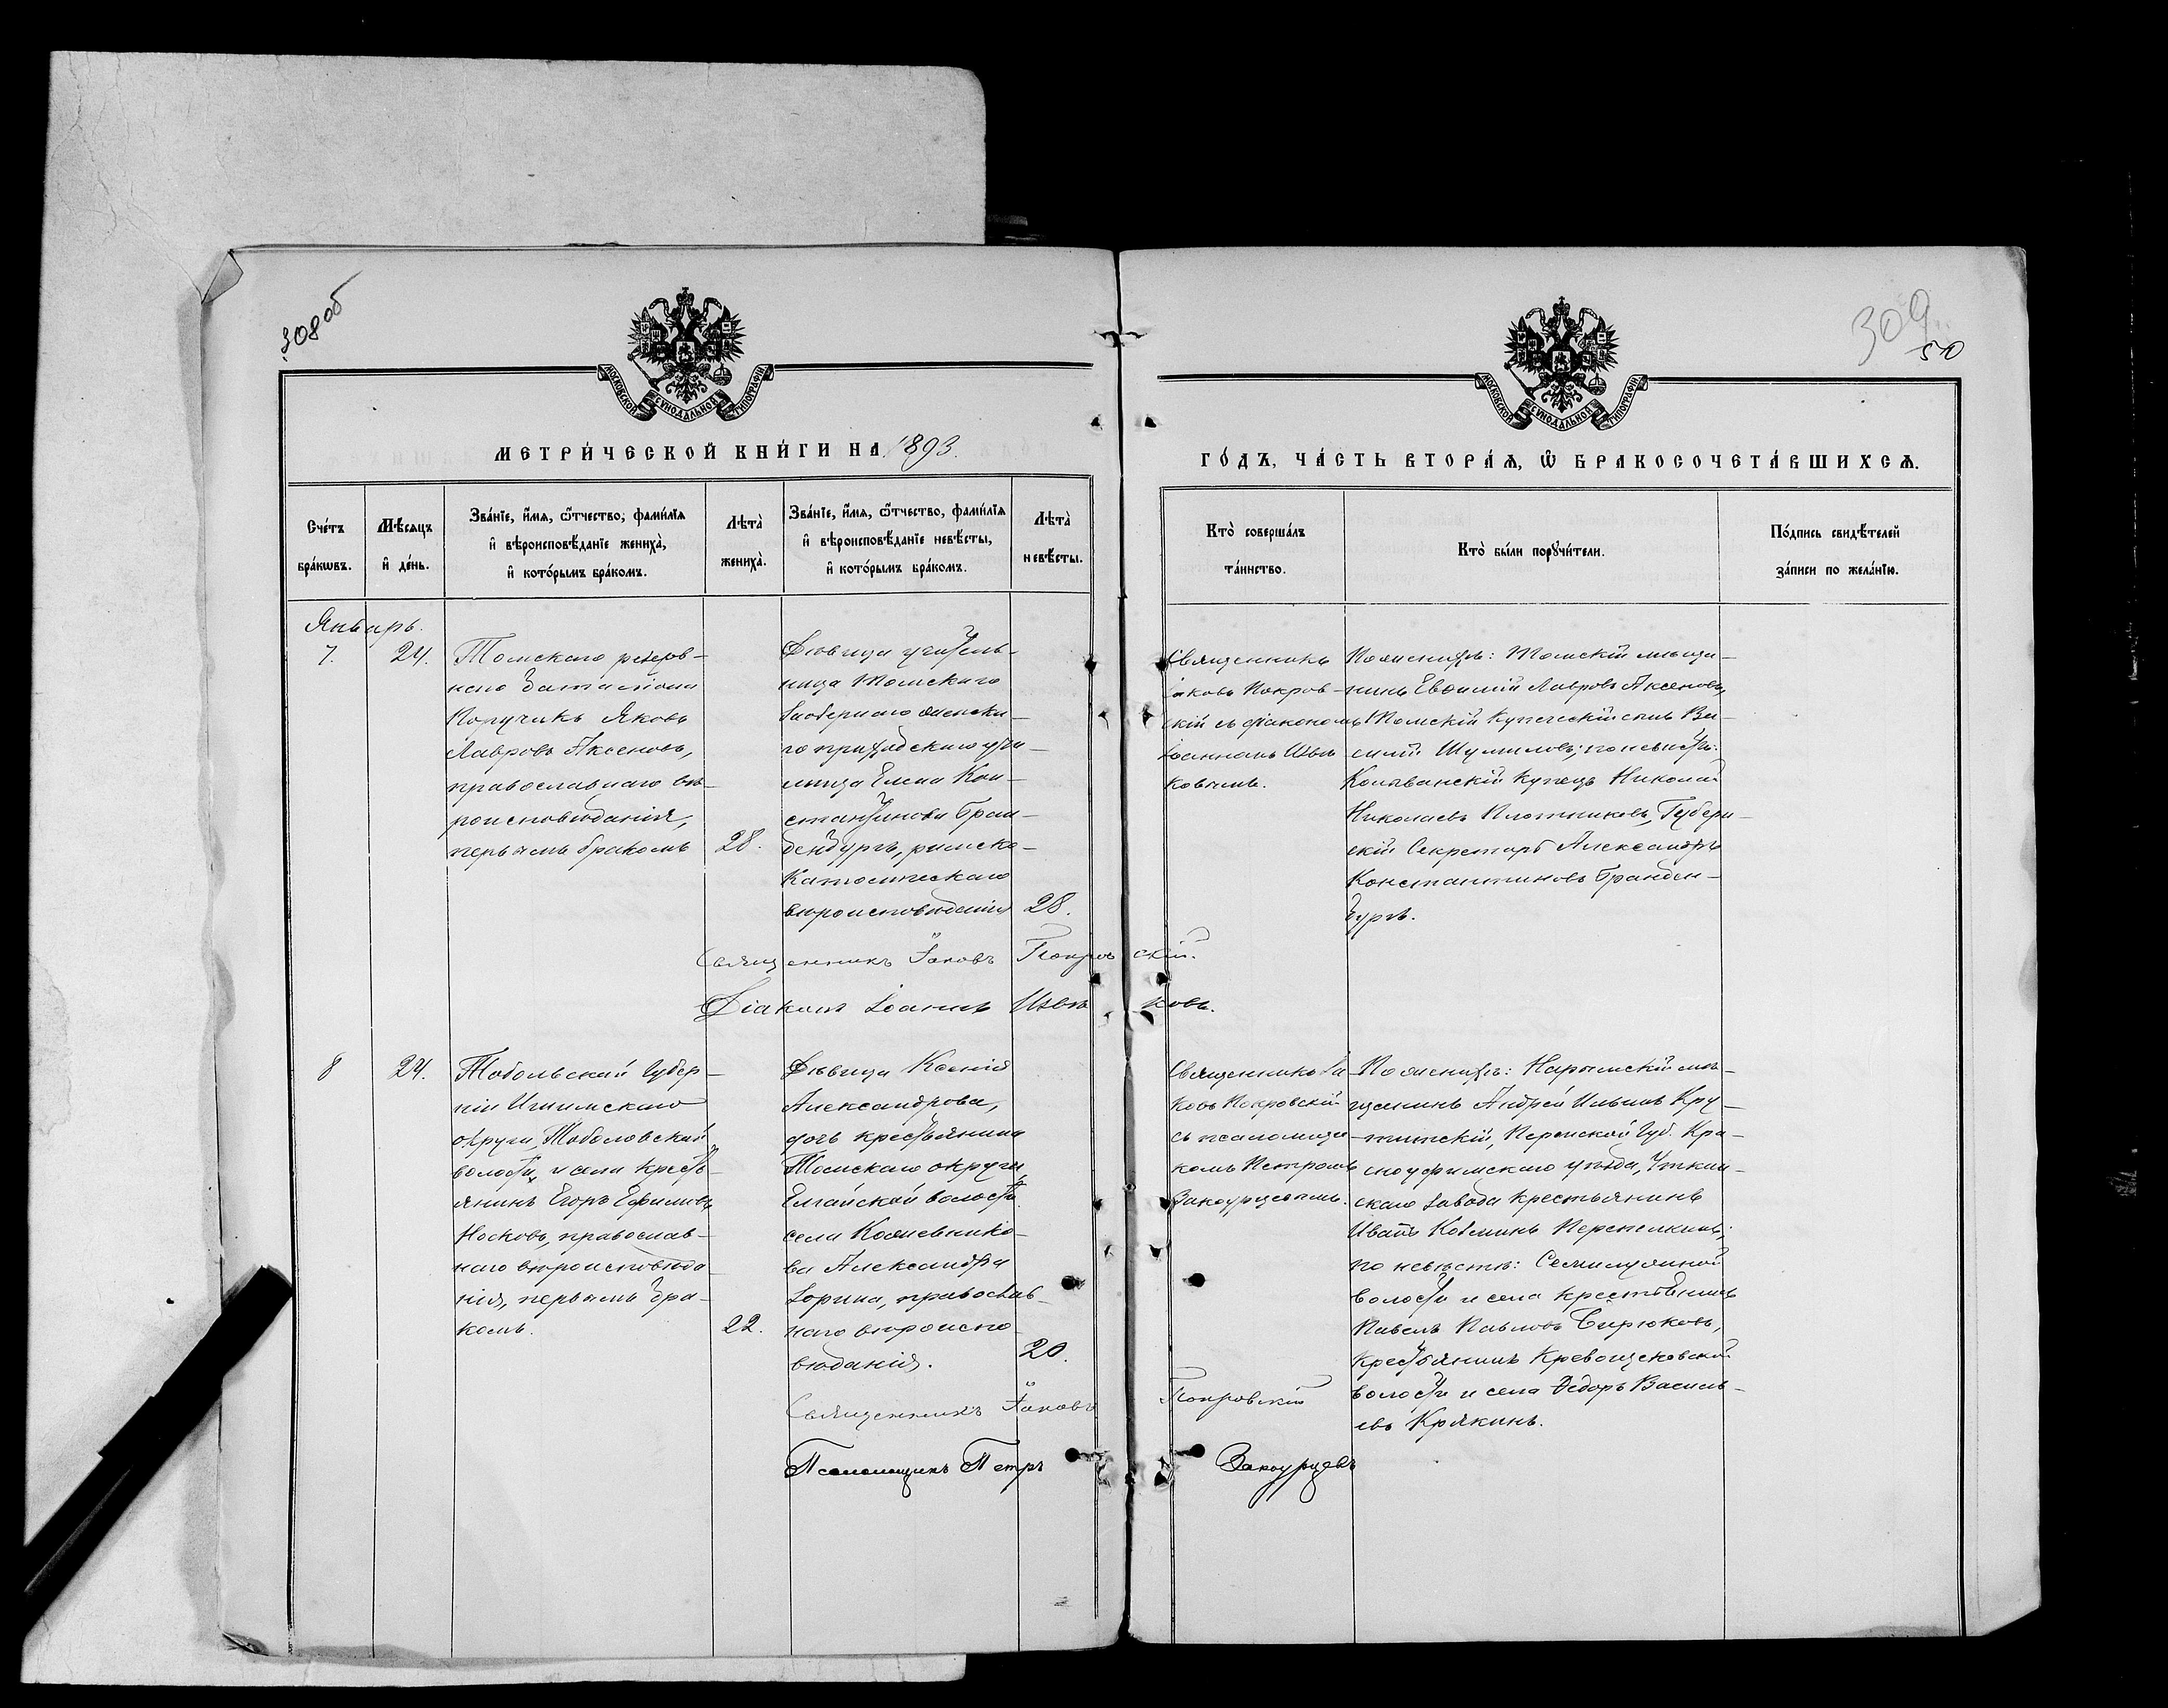 308 об
309
50
МОСКОВСКОЙ СѴНОДАЛЬНОЙ ТИПОГРАФІИ
МОСКОВСКОЙ СѴНОДАЛЬНОЙ ТИПОГРАФІИ
МЕТРИ́ЧЕСКОЙ КНИ́ГИ НА 1893.
ГО́ДЪ, ЧА́СТЬ ВТОРА́Ѧ, Ѽ БРАКОСОЧЕТА́ВШИХСѦ.
Сче́тъ
бра́кѡвъ.
Мѣ́сяцъ
и҆ де́нь.
Зва́нїе, и҆́мя, ѻ҆́тчество, фами́лїя
и҆ вѣроисповѣ́данїе жениха̀,
и҆ кото́рымъ бра́комъ.
Лѣта̀
жениха̀.
Зва́нїе, и҆́мя, ѻ҆́тчество, фами́лїя
и҆ вѣроисповѣ́данїе невѣ́сты,
и҆ кото́рымъ бра́комъ.
Лѣта̀
невѣ́сты.
Кто̀ соверша́лъ
та́инство.
Кто̀ бы́ли порꙋчи́тели.
По́дпись свидѣ́телей
за́писи по жела́нїю.
Январь.
7.
24.
Томскаго резерв-
наго баталіона
Поручикъ Яковъ
Лавровъ Аксеновъ,
православнаго вѣ-
роисповѣданія,
первымъ бракомъ
28.
Дѣвица учитель-
ница Томскаго
Заозернаго женска-
го приходскаго учи-
лища Елена Кон-
стантинова Бран-
денбургъ, римско-
Католическаго
вѣроисповѣданія
28.
Священникъ
Іаковъ Покров-
скій съ діакономъ
Іоанномъ Ивѣ
ковымъ.
По женихѣ: Томскій мѣща-
нинъ Евѳимій Лавровъ Аксеновъ,
Томскій Купеческій сынъ Ва-
силій Шумиловъ; по невѣстѣ:
Колыванскій Купецъ Николай
Николаевъ Плотниковъ, Губерн-
скій Секретарь Александръ
Константиновъ Бранден-
бургъ.
Священникъ Іаковъ Покровскій.
Діаконъ Іоаннъ Ивѣ ковъ.
8
24.
Тобольской губер-
ніи Ишимскаго
округа, Тоболовской
волости и села кресть-
янинъ Егоръ Ефимовъ
Носковъ, православ-
наго вѣроисповѣда
нія, первымъ бра-
комъ.
22.
Дѣвица Ксенія
Александрова,
дочь крестьянина
Томскаго округа,
Елгайской волости
села Кожевнико-
ва Александра
Зорина, православ-
наго вѣроиспо
вѣданія.
20.
Священникъ Іа-
ковъ Покровскій
съ псаломщи-
комъ Петромъ
Закоурцевымъ.
По женихѣ: Нарымскій мѣ-
щанинъ Андрей Ильинъ Кру-
тинскій, Пермской Губ. Кра-
сноуфимскаго уѣзда, Уткин-
скаго Завода крестьянинъ
Иванъ Козминъ Перепелкинъ;
по невѣстѣ: Семилужной
волости и села крестьянинъ
Павелъ Павловъ Бирюковъ,
крестьянинъ Кревощековской
волости и села Ѳедоръ Василь-
евъ Крякинъ.
Священникъ Іаковъ Покровскій
Псаломщикъ Петръ Закоурцевъ